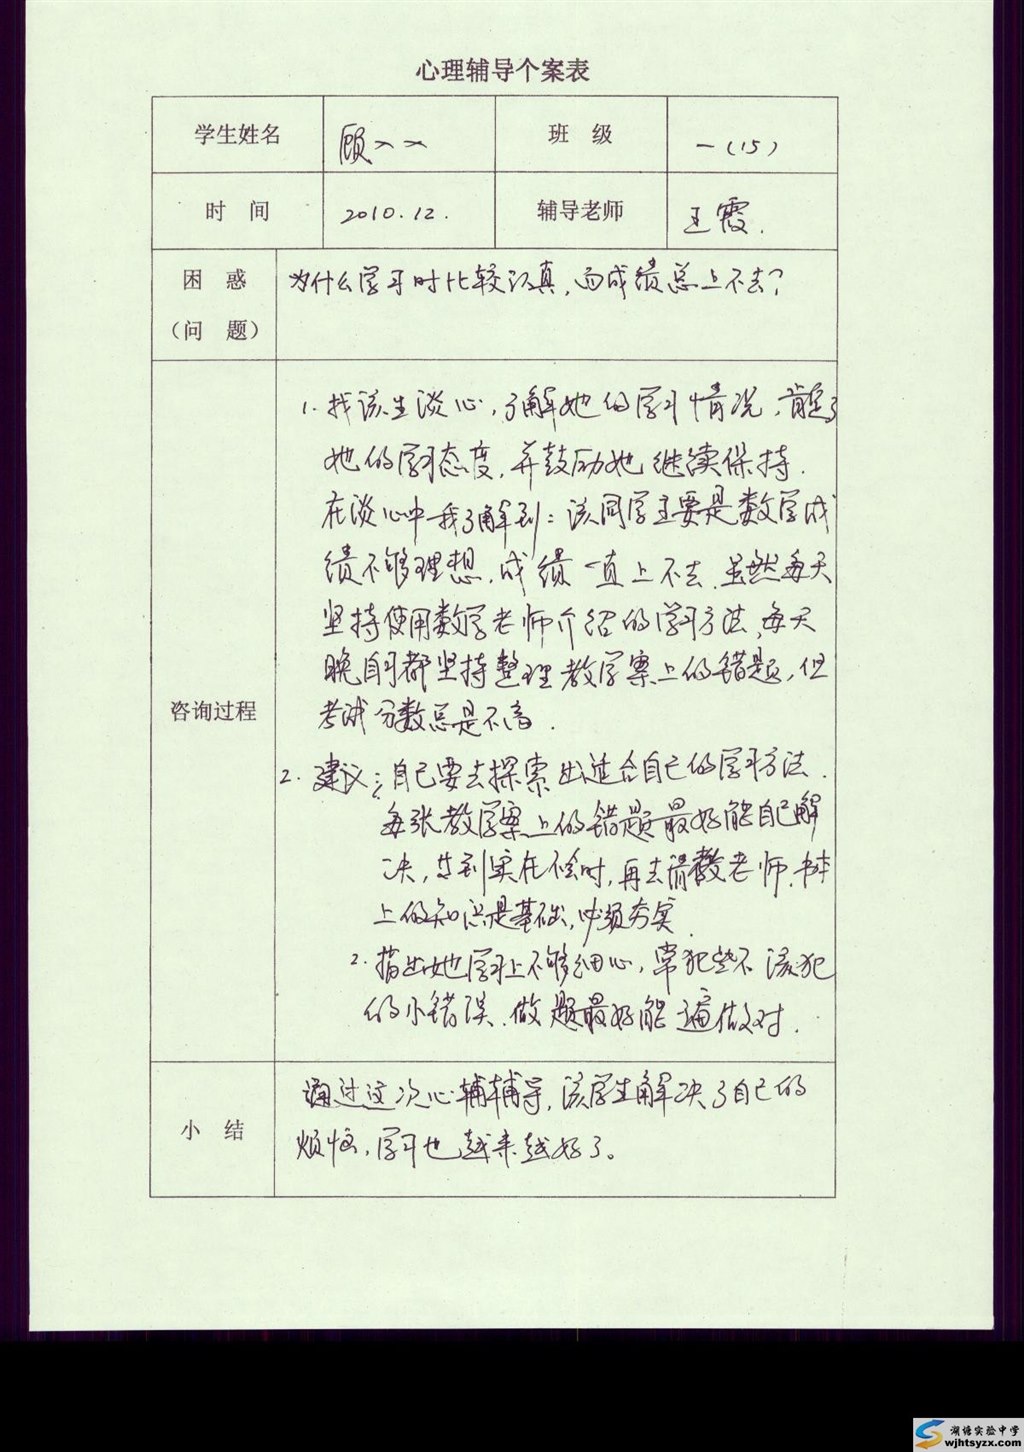 心理辅导个案表
学生姓名 顾×× 班 级 一(15)
时 间 2010.12. 辅导老师 王霞.
困 惑 为什么学习时比较认真,而成绩总上不去?
(问 题)
1. 找该生谈心,了解她的学习情况,肯定了
她的学习态度,并鼓励她继续保持.
在谈心中我了解到:该同学主要是数学成
绩不够理想,成绩一直上不去.虽然每天
坚持使用数学老师介绍的学习方法,每天
晚自习都坚持整理教学案上的错题,但
咨询过程
考试分数总是不高.
2. 建议:自己要去探索出适合自己的学习方法.
每张教学案上的错题最好能自己解
决,等到实在不会时,再去请教老师.书本
上的知识是基础,必须夯实.
2. 指出她学习上不够细心,常犯些不该犯
的小错误.做题最好能一遍做对.
通过这次心辅辅导,该学生解决了自己的
小 结
烦恼,学习也越来越好了。
湖塘实验中学
wjhtsyzx.com